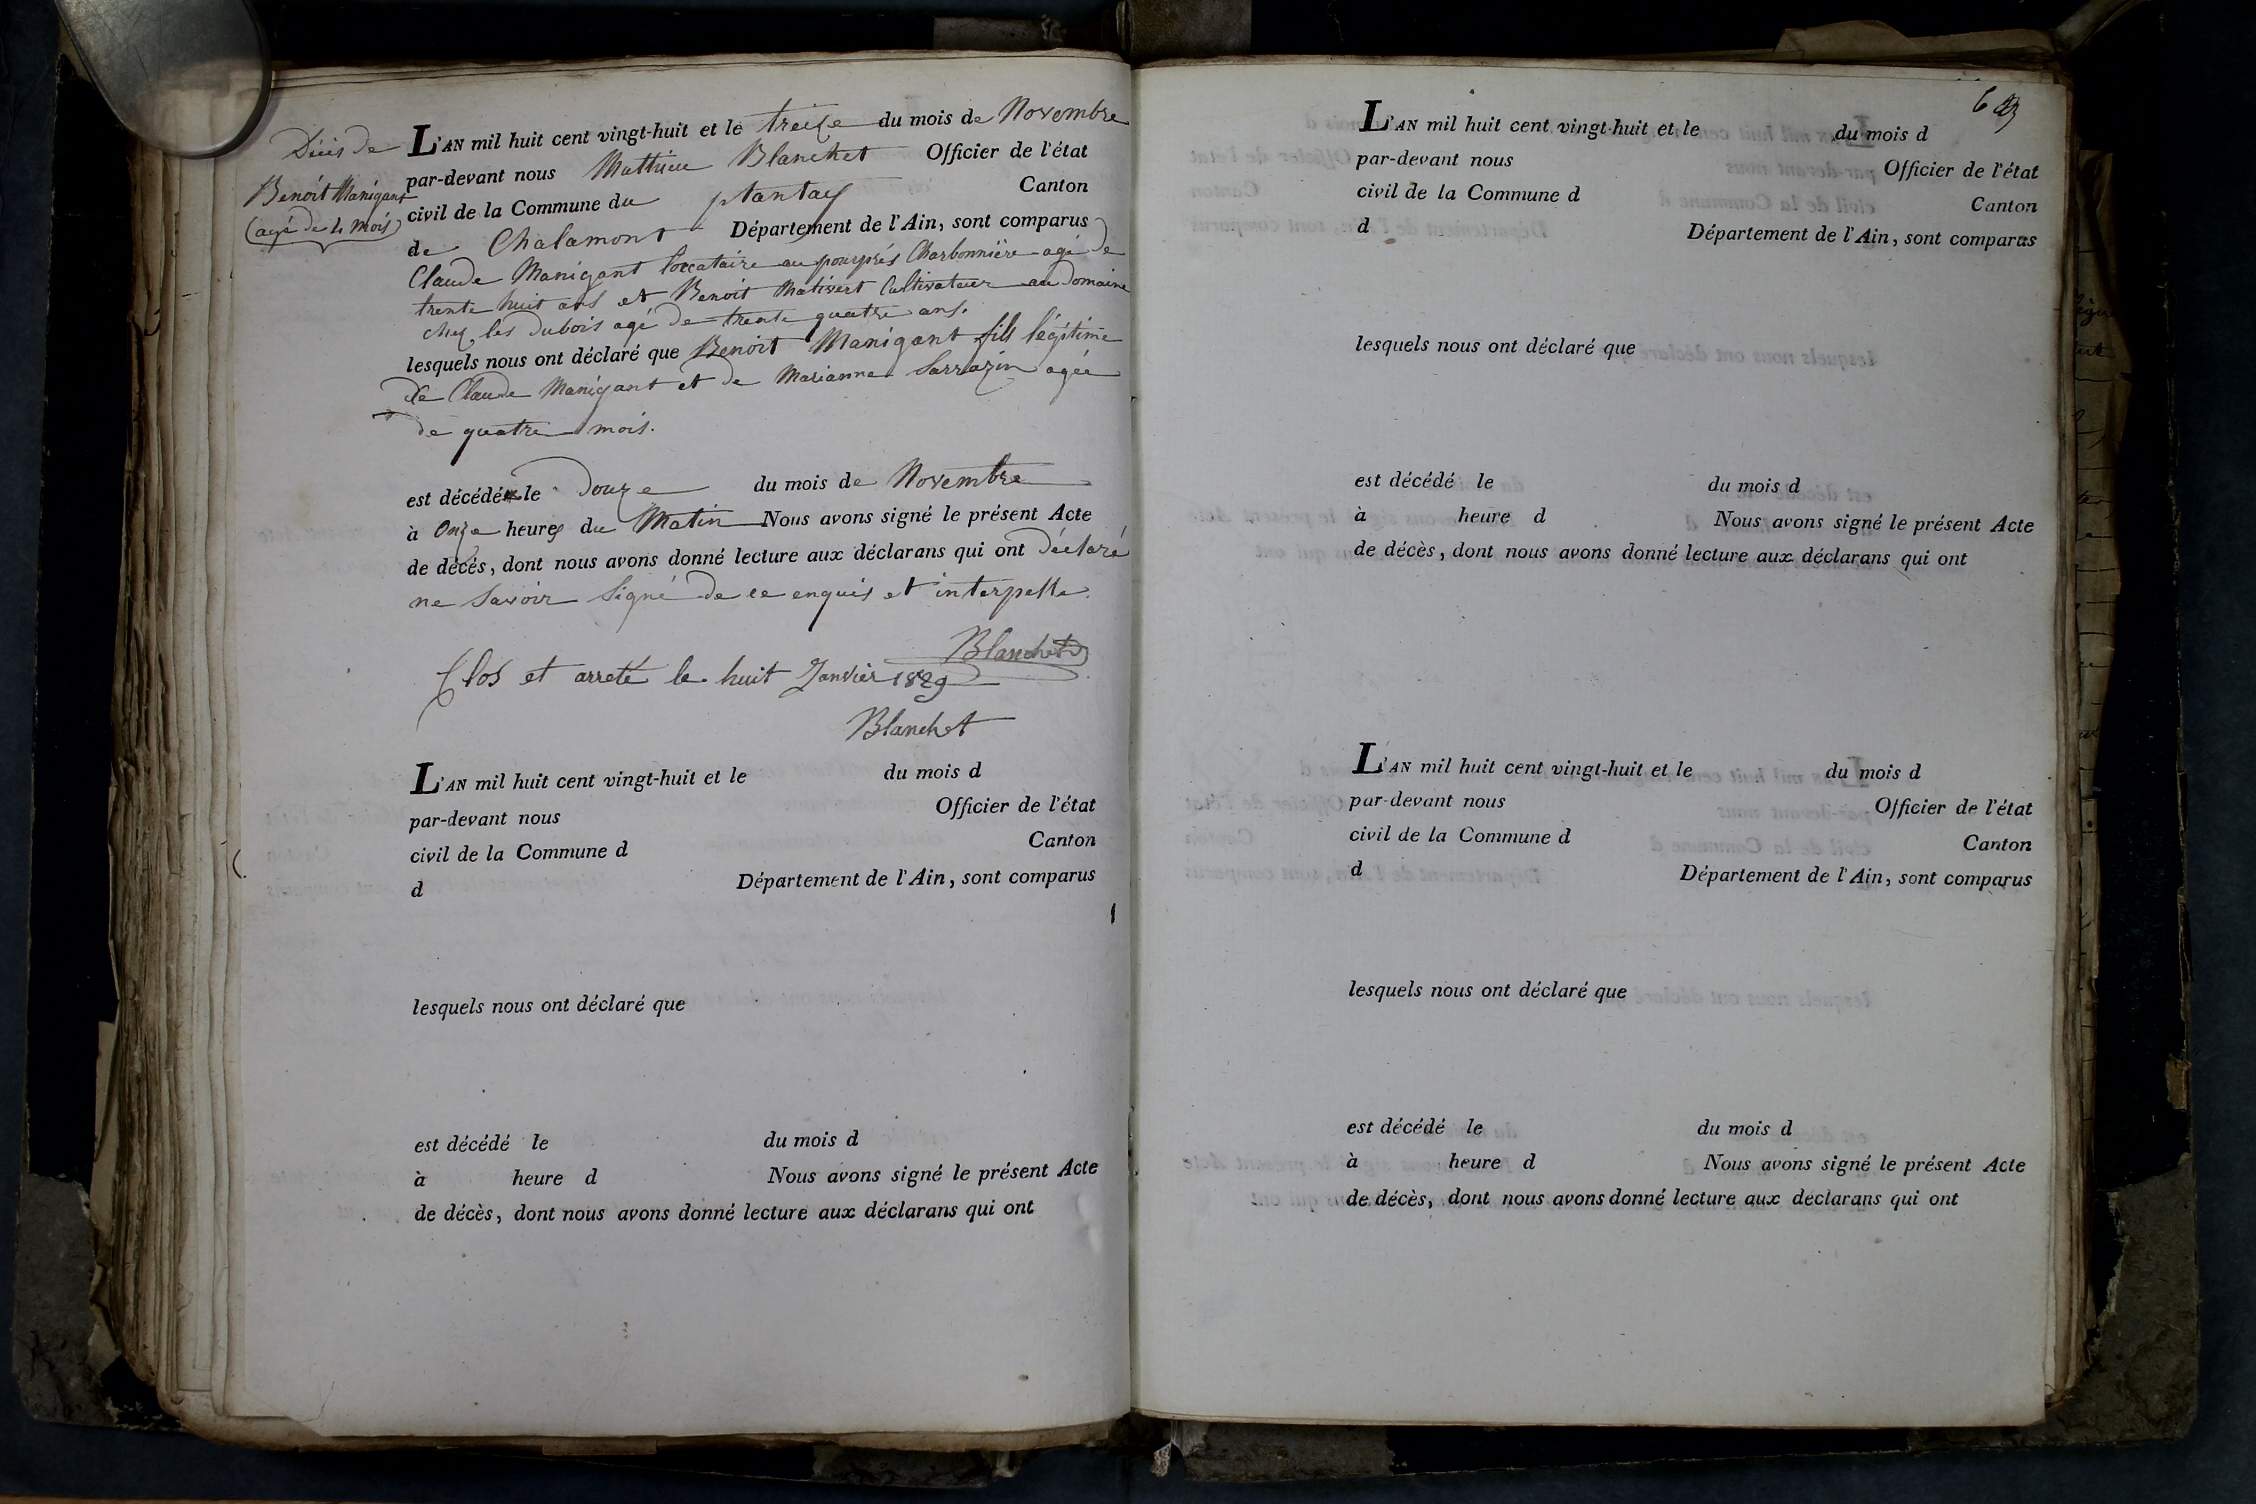 Décès de
Benoît Manigant
(agé de 4 mois)
L'AN mil huit cent vingt-huit et le treize du mois de Novembre
par-devant nous Mathieu Blanchet Officier de l'état
civil de la Commune du plantay Canton
de Chalamont Département de l'Ain, sont comparus
Claude Manigant locataire au pourprés Charbonnière agé de
trente huit ans et Benoit Mativert Cultivateur au Domaine
chez les dubois agé de trente quatre ans.
lesquels nous ont déclaré que Benoit Manigant fils légitime
de Claude Manigant et de Marianne Sarrazin agée
de quatre mois.
est décédé le Douze du mois de Novembre
à onze heures du Matin Nous avons signé le présent Acte
de décès, dont nous avons donné lecture aux déclarans qui ont déclaré
ne Savoir Signé de ce enquis et interpellé.
Blanchet
Clos et arreté le huit Janvier 1829
Blanchet
L'AN mil huit cent vingt-huit et le du mois d
par-devant nous Officier de l'état
civil de la Commune d Canton
d Département de l'Ain, sont comparus
lesquels nous ont déclaré que
est décédé le du mois d
à heure d Nous avons signé le présent Acte
de décès, dont nous avons donné lecture aux déclarans qui ont
6
L'AN mil huit cent vingt-huit et le du mois d
par-devant nous Officier de l'état
civil de la Commune d Canton
d Département de l'Ain, sont comparus
lesquels nous ont déclaré que
est décédé le du mois d
à heure d Nous avons signé le présent Acte
de décès, dont nous avons donné lecture aux déclarans qui ont
L'AN mil huit cent vingt-huit et le du mois d
par-devant nous Officier de l'état
civil de la Commune d Canton
d Département de l'Ain, sont comparus
lesquels nous ont déclaré que
est décédé le du mois d
à heure d Nous avons signé le présent Acte
de décès, dont nous avons donné lecture aux déclarans qui ont